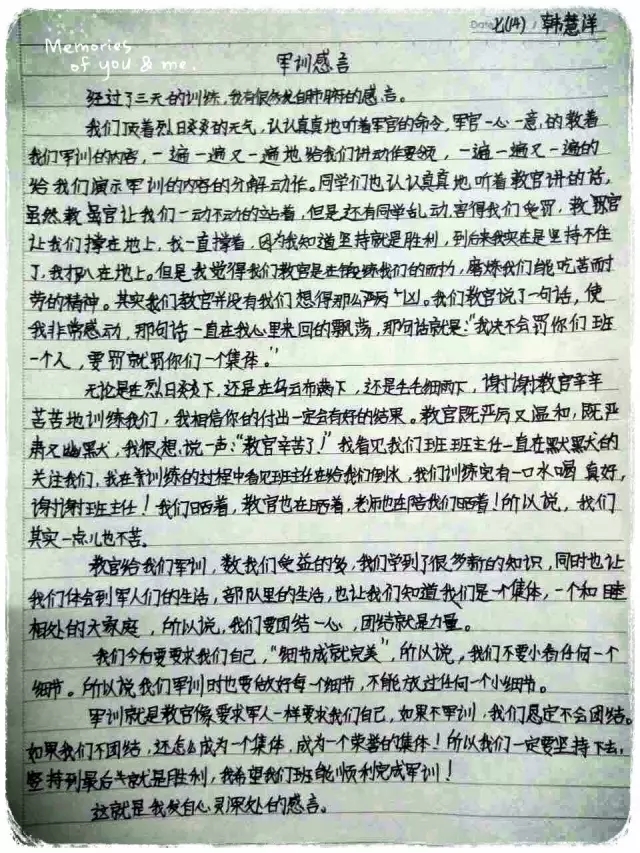 Memories
of you & me.
Date 七(14) 韩慧洋
军训感言
经过了三天的训练,我有很多发自肺腑的感言。
我们顶着烈日炎炎的天气,认认真真地听着军官的命令,军官一心一意的教着
我们军训的内容,一遍一遍又一遍地给我们讲动作要领,一遍一遍又一遍的
给我们演示军训的内容的分解动作。同学们也认认真真地听着教官讲的话,
虽然教官让我们一动不动的站着,但是还有同学乱动,害得我们受罚,教官
让我们撑在地上,我一直撑着,因为我知道坚持就是胜利,到后来我实在是坚持不住
了,我趴在地上。但是我觉得我们教官是在锻炼我们的耐力,磨炼我们能吃苦耐
劳的精神。其实我们教官并没有我们想得那么严厉、凶。我们教官说了一句话,使
我非常感动,那句话一直在我心里来回的飘荡,那句话就是:“我决不会罚你们班
一个人,要罚就罚你们一个集体。”
无论是在烈日炎炎下,还是在乌云布满下,还是毛毛细雨下,谢谢教官辛辛
苦苦地训练我们,我相信你的付出一定会有好的结果。教官既严厉又温和,既严
肃又幽默,我很想说一声:“教官辛苦了!”我看见我们班班主任一直在默默的
关注我们,我在训练的过程中看见班主任在给我们倒水,我们训练完有一口水喝真好,
谢谢班主任!我们晒着,教官也在晒着,老师也在陪我们晒着!所以说,我们
其实一点儿也不苦。
教官给我们军训,数我们受益的多,我们学到了很多新的知识,同时也让
我们体会到军人们的生活,部队里的生活,也让我们知道我们是一个集体,一个和睦
相处的大家庭,所以说,我们要团结一心,团结就是力量。
我们今后要要求我们自己,“细节成就完美”,所以说,我们不要小看任何一个
细节。所以说我们军训时也要做好每一个细节,不能放过任何一个小细节。
军训就是教官像要求军人一样要求我们自己,如果不军训,我们恳定不会团结。
如果我们不团结,还怎么成为一个集体,成为一个荣誉的集体!所以我们一定要坚持下去,
坚持到最后就是胜利,我希望我们班能顺利完成军训!
这就是我发自心灵深处的感言。